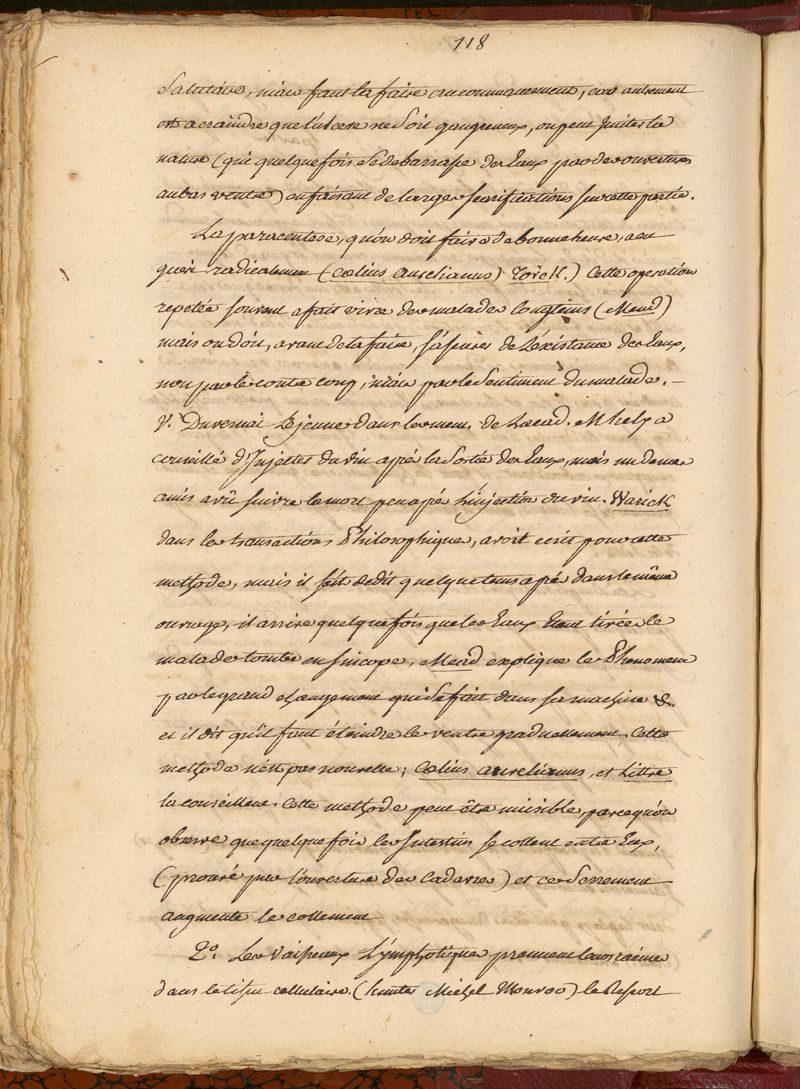 118
Salutaire, mais faut la faire au commencement, car autrement
est a craindre que l'ulcere ne soit gangreneux, on peut imiter la
nature (qui quelque fois se debarrasse des Eaux par des ouvertures
au bas ventre) en faisant de larges scarifications sur cette partie.
La paracentese, qu'on doit faire de bonne heure, a eu
gueri radicalement (Cælius aurelianus) Cette operation
repetée souvent a fait vivre des malades longtems (Mead)
mais on doit, avant de la faire, s'assurer de L'existance des Eaux,
non par le contre coup, mais par le sentiment du malade. -
V. Duvernai Le jeune dans les mem. de L'acad. Mhelp a
conseillé d'Injetter du vin aprés la sortie des Eaux, mais un de mes
amis a vû suivre la mort peu aprés L'injection du vin. Warick
dans les transactions Philosophique, avoit ecrit pour cette
methode, mais il s'est dedit quelque tems aprés dans le même
ouvrage, il arrive quelque fois que les Eaux etant tirées le
malade tombe en sincope, Mead explique le Phenomene
par le grand changement qui se fait dans la machine &.
et il dit qu'il faut éteindre le ventre graduellement. Cette
methode n'est pas nouvelle; Cælius aurelianus, et Littre
la conseillent. Cette methode peut être nuisible, parce qu'on
observe que quelque fois les Intestins se collent entre Eux,
(prouvé par l'ouverture des Cadavres) et ce serrement
augmente le collement
2.° Les Vaisseaux Lymphatiques prennent leurs racines
dans le tissu cellulaire. (hunter Michel Monroo) le Ressort